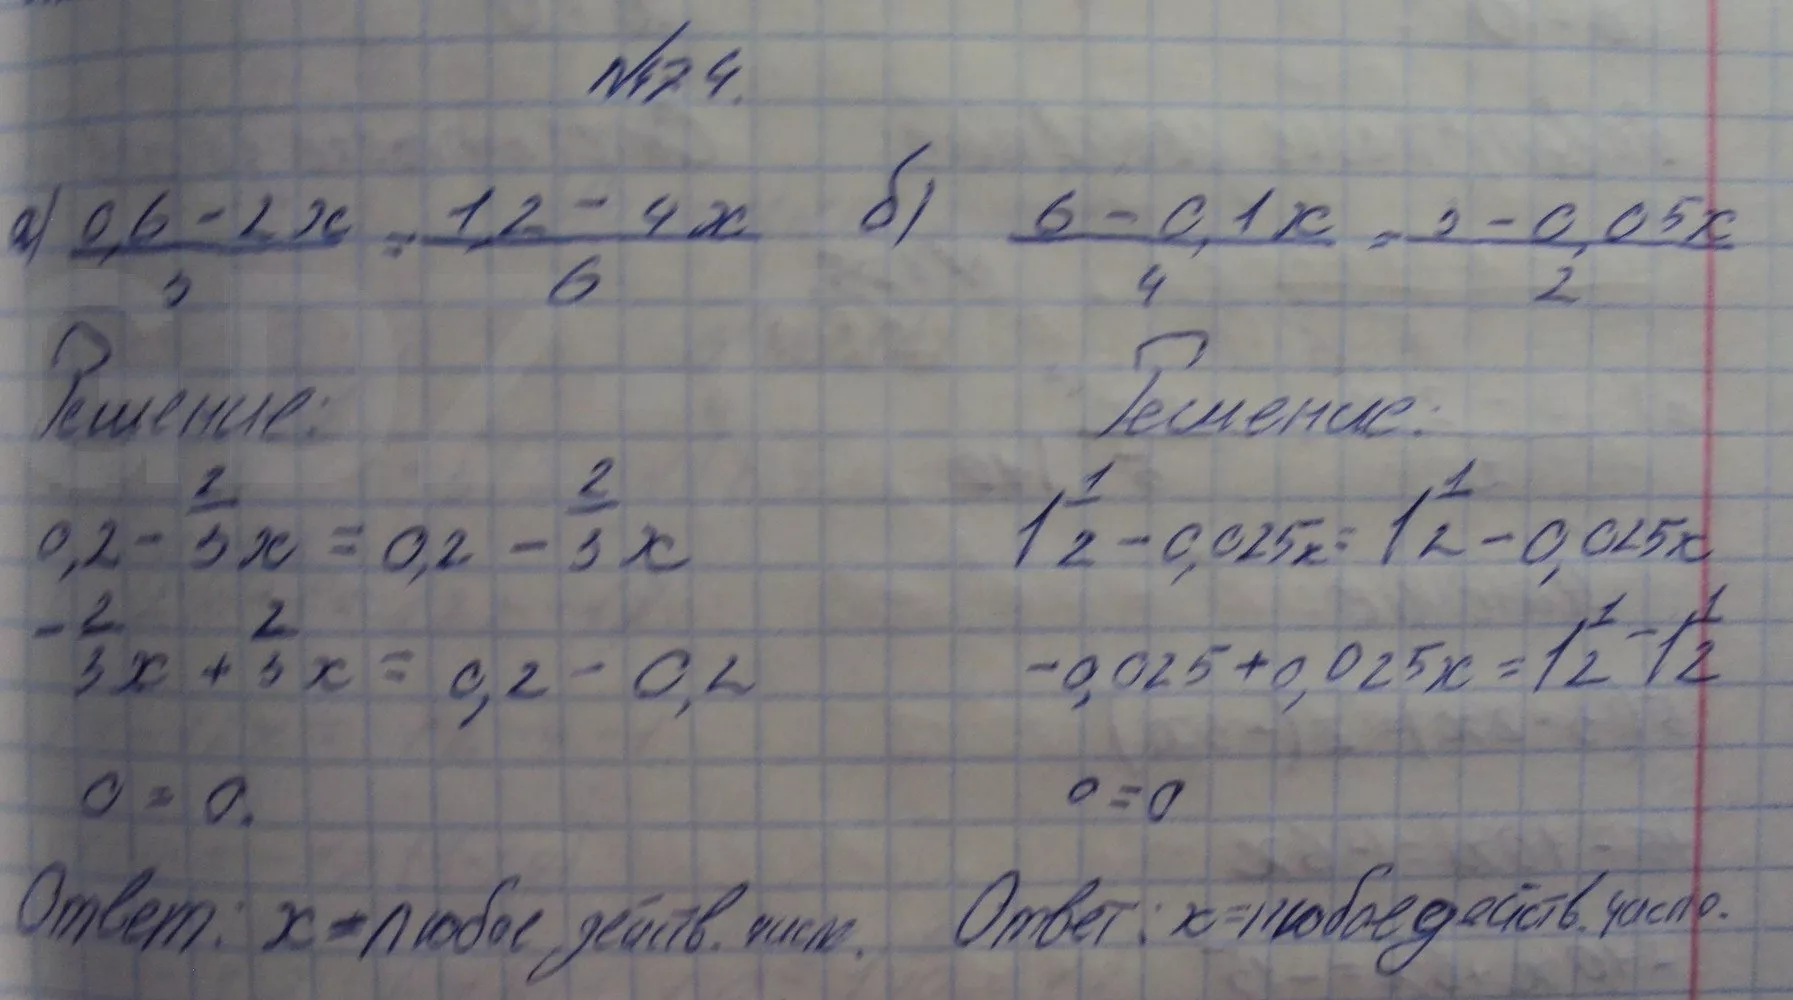 №174.
а) (0,6 - 2x)/3 = (1,2 - 4x)/6
Решение:
0,2 - 2/3 x = 0,2 - 2/3 x
- 2/3 x + 2/3 x = 0,2 - 0,2
0 = 0.
Ответ: x - любое действ. числ.
б) (6 - 0,1x)/4 = (3 - 0,05x)/2
Решение:
1 1/2 - 0,025x = 1 1/2 - 0,025x
-0,025 + 0,025x = 1 1/2 - 1 1/2
0 = 0
Ответ: x = любое действ. число.